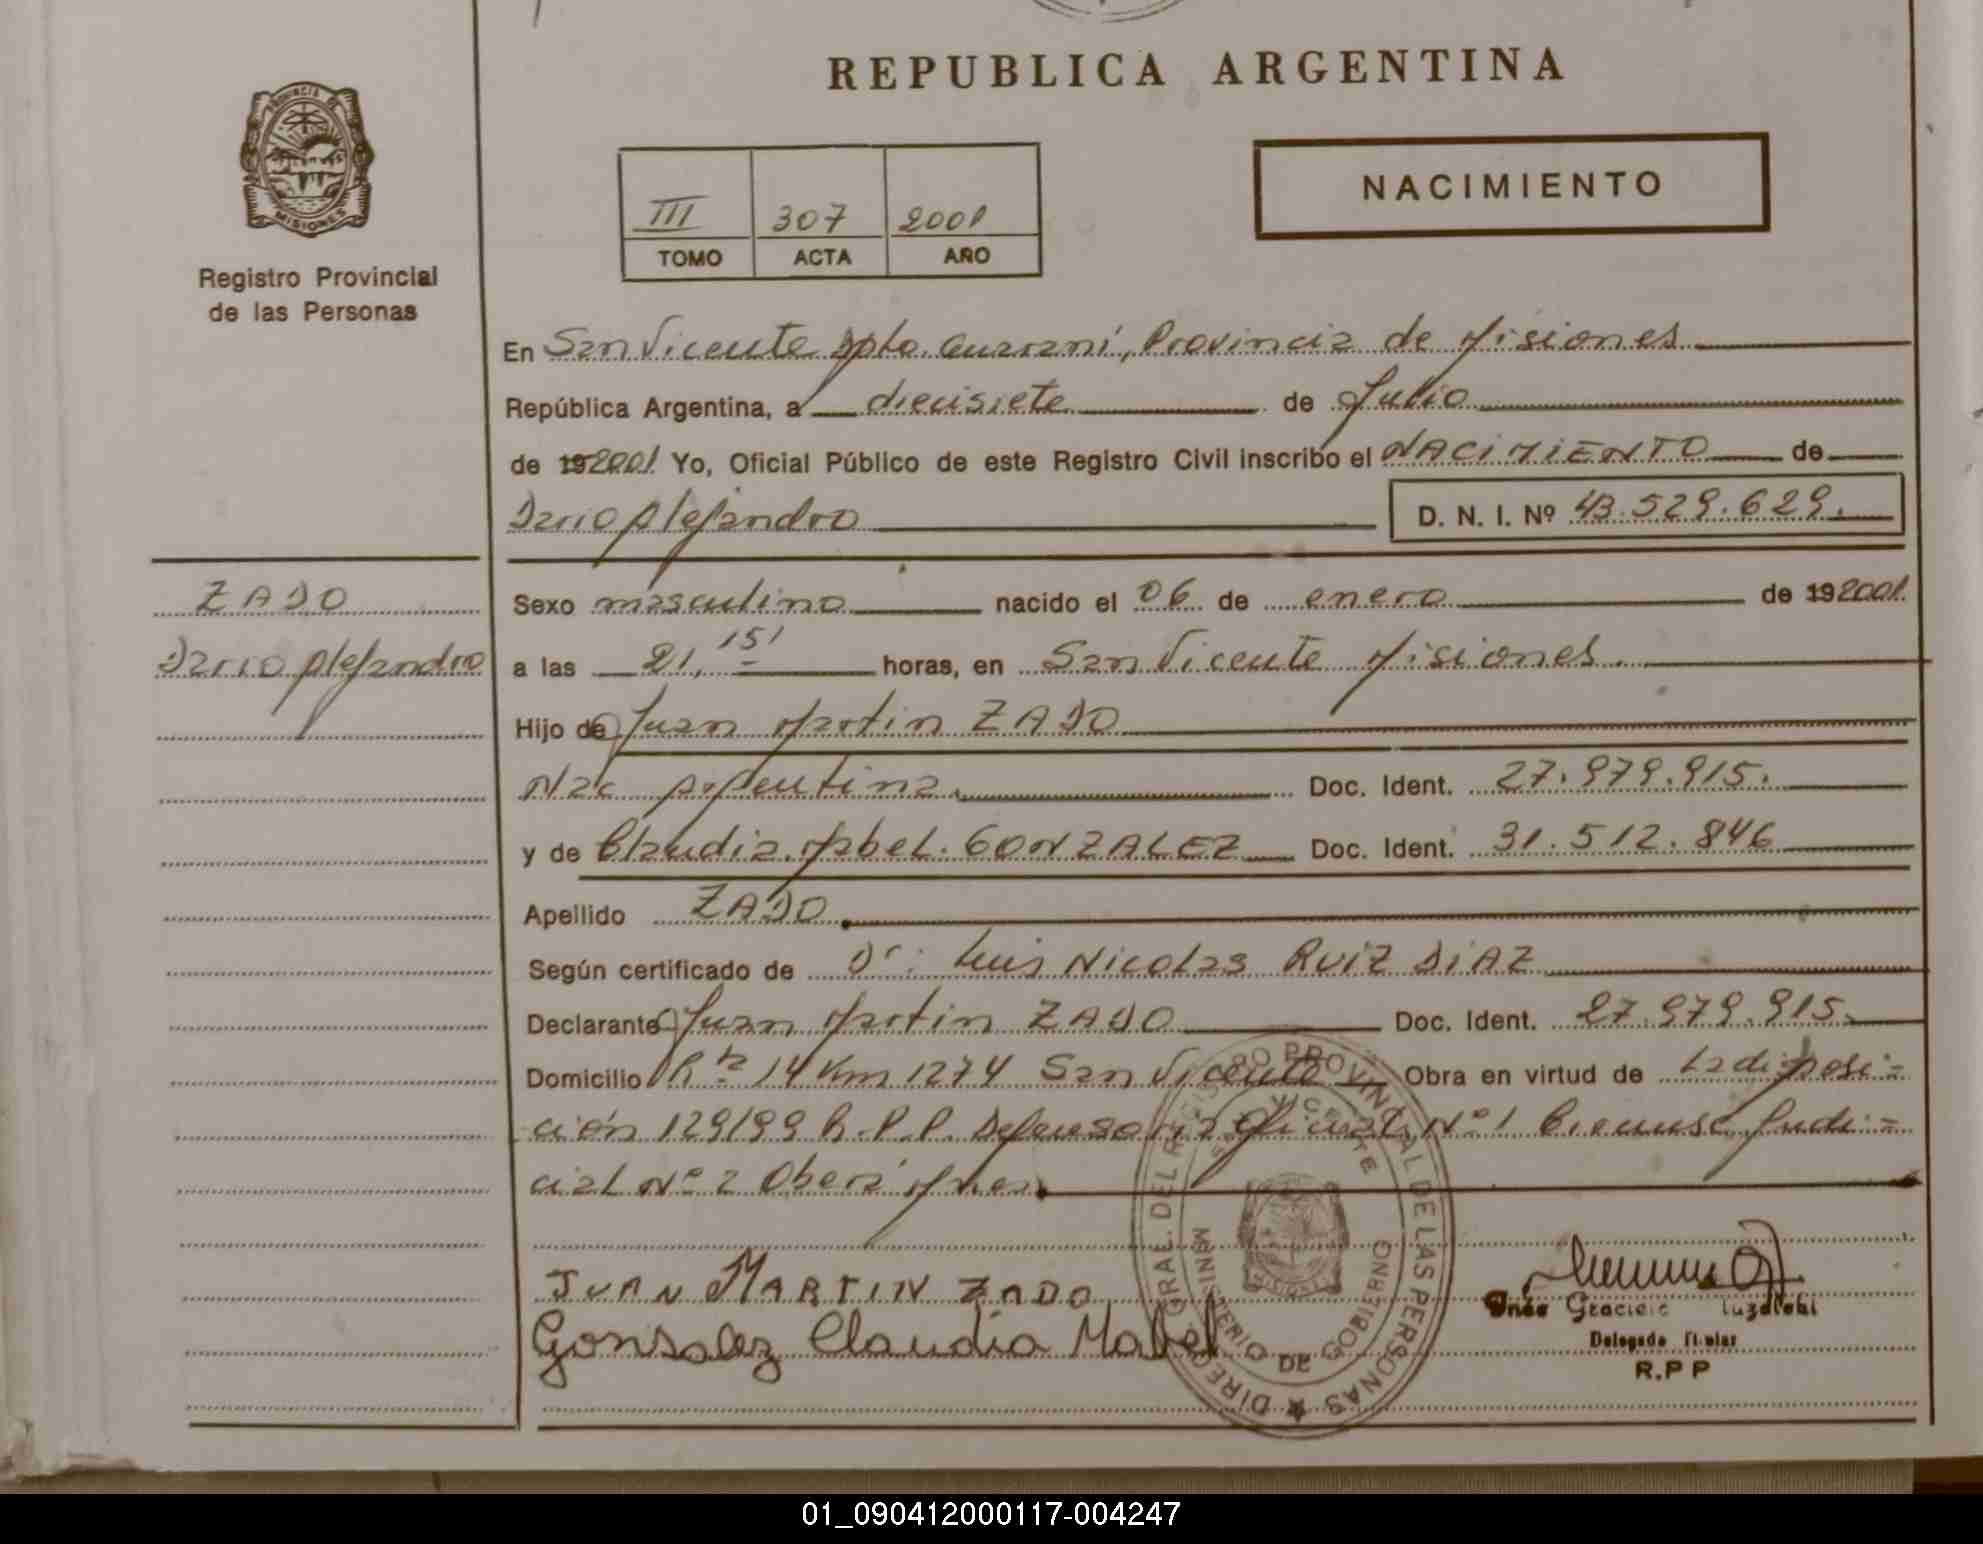 REPUBLICA ARGENTINA
PROVINCIA DE
MISIONES
Registro Provincial
de las Personas
III 307 2001
TOMO ACTA AÑO
NACIMIENTO
En San Vicente Dpto. Guaraní, Provincia de Misiones
República Argentina, a diecisiete de Julio
de 192001. Yo, Oficial Público de este Registro Civil inscribo el NACIMIENTO de
Dario Alejandro D. N. I. Nº 43.529.629.
ZADO
Dario Alejandro
Sexo masculino nacido el 06 de enero de 192001.
a las 21,15' horas, en San Vicente Misiones.
Hijo de Juan Martin ZADO
Nac Argentina. Doc. Ident. 27.979.915.
y de Claudia Mabel. GONZALEZ Doc. Ident. 31.512.846
Apellido ZADO
Según certificado de Dr: Luis Nicolas RUIZ DIAZ
Declarante Juan Martin ZADO Doc. Ident. 27.979.915.
Domicilio 14 Km 1274 San Vicente Obra en virtud de La disposi=
ción 129/99 R.P.P. Defensoria Oficial Nº 1 Circunsc. Judi=
cial Nº 2 Oberá Mnes.
JUAN MARTIN ZADO
Gonzalez Claudia Mabel
DIREC. GRAL. DEL REGISTRO PROVINCIAL DE LAS PERSONAS
SAN VICENTE
MINISTERIO DE GOBIERNO
Graciela
Delegada Titular
R.P P
01_090412000117-004247